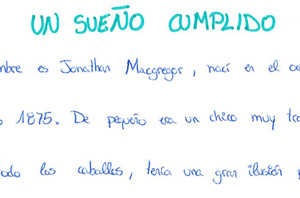 UN SUEÑO CUMPLIDO
es Jonathan Macgregor, nací en el
1875. De pequeño era un chico muy
los caballos, tenía una gran ilusión